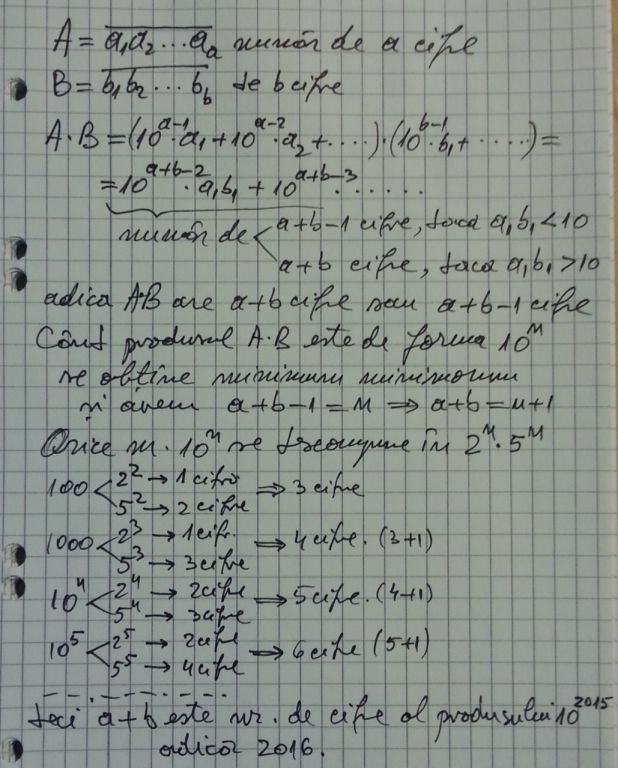 A = a₁a₂...aₐ număr de a cifre
B = b₁b₂...b_b de b cifre
A·B = (10^(a-1)·a₁ + 10^(a-2)·a₂ + ....)·(10^(b-1)·b₁ + .....) =
= 10^(a+b-2)·a₁b₁ + 10^(a+b-3)......
număr de < a+b-1 cifre, daca a₁b₁ < 10
a+b cifre, daca a₁b₁ > 10
adica AB are a+b cifre sau a+b-1 cifre
Când produsul A·B este de forma 10^n
se obtine minimum minimorum
și avem a+b-1 = n ⇒ a+b = n+1
Orice nr. 10^n se descompune în 2^n·5^n
100 < 2² → 1 cifră
5² → 2 cifre ⇒ 3 cifre
1000 < 2³ → 1 cifr.
5³ → 3 cifre ⇒ 4 cifre. (3+1)
10⁴ < 2⁴ → 2 cifre
5⁴ → 3 cifre ⇒ 5 cifre. (4+1)
10⁵ < 2⁵ → 2 cifre
5⁵ → 4 cifre ⇒ 6 cifre (5+1)
deci a+b este nr. de cifre al produsului 10^2015
adică 2016.